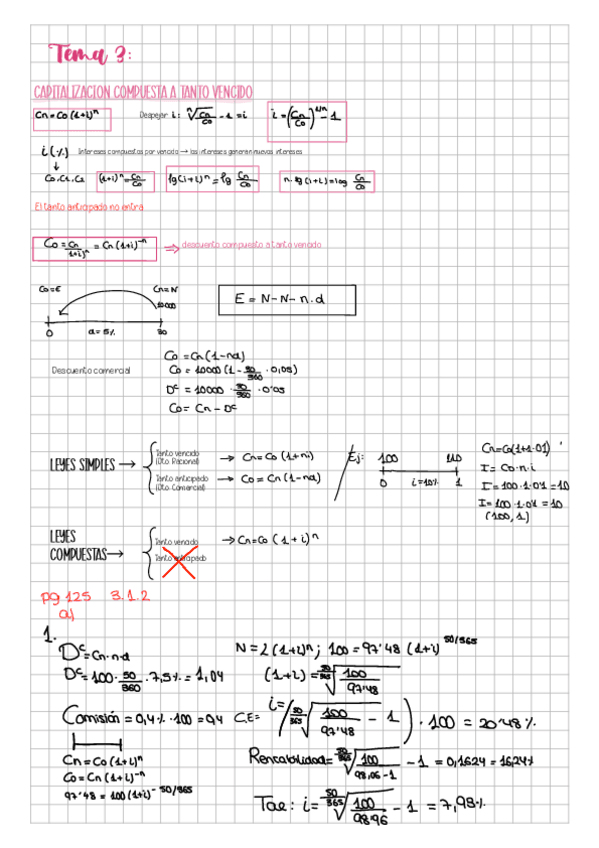 Tema 3:
CAPITALIZACION COMPUESTA A TANTO VENCIDO
Cn = Co (1+i)ⁿ
Despejar i: ⁿ√(Cn/Co) - 1 = i
i = (Cn/Co)^1/n - 1
i (%) Intereses compuestos por vencido → los intereses generan nuevos intereses
↓
Co, C1, C2
(1+i)ⁿ = Cn/Co
lg(1+i)ⁿ = lg Cn/Co
n. lg (1+i) = log Cn/Co
El tanto anticipado no entra
Co = Cn/(1+i)ⁿ = Cn (1+i)⁻ⁿ ⇒ descuento compuesto a tanto vencido
Co=E Cn=N
10000
0 d=5% 90
E = N - N · n . d
Descuento comercial
Co = Cn (1-nd)
Co = 10000 (1 - 90/360 · 0,05)
Dᶜ = 10000 · 90/360 · 0'05
Co = Cn - Dᶜ
LEYES SIMPLES →
Tanto vencido (Dto. Racional) → Cn = Co (1+ni)
Tanto anticipado (Dto. Comercial) → Co = Cn (1-nd)
Ej: 100 110
0 i=10% 1
Cn=Co(1+1·01)
I = Co·n·i
I = 100·1·01 = 10
I = 100·1·01 = 10
(100, 1)
LEYES COMPUESTAS →
Tanto vencido → Cn = Co (1+i)ⁿ
Tanto anticipado
pg 125 3.1.2
a)
1.
Dᶜ = Cn·n·d
Dᶜ = 100 · 50/360 · 7,5% = 1,04
Comisión = 0,4% · 100 = 0,4
Cn = Co (1+i)ⁿ
Co = Cn (1+i)⁻ⁿ
97'48 = 100 (1+i)^-50/365
N = L (1+i)ⁿ; 100 = 97'48 (1+i)^50/365
(1+i) = ^50/365√(100/97'48)
C.E = i = (^50/365√(100/97'48) - 1) · 100 = 20'48%
Rentabilidad = ^50/365√(100/98,06-1) - 1 = 0,1624 = 16,24%
Tae: i = ^50/365√(100/98'96) - 1 = 7,98%